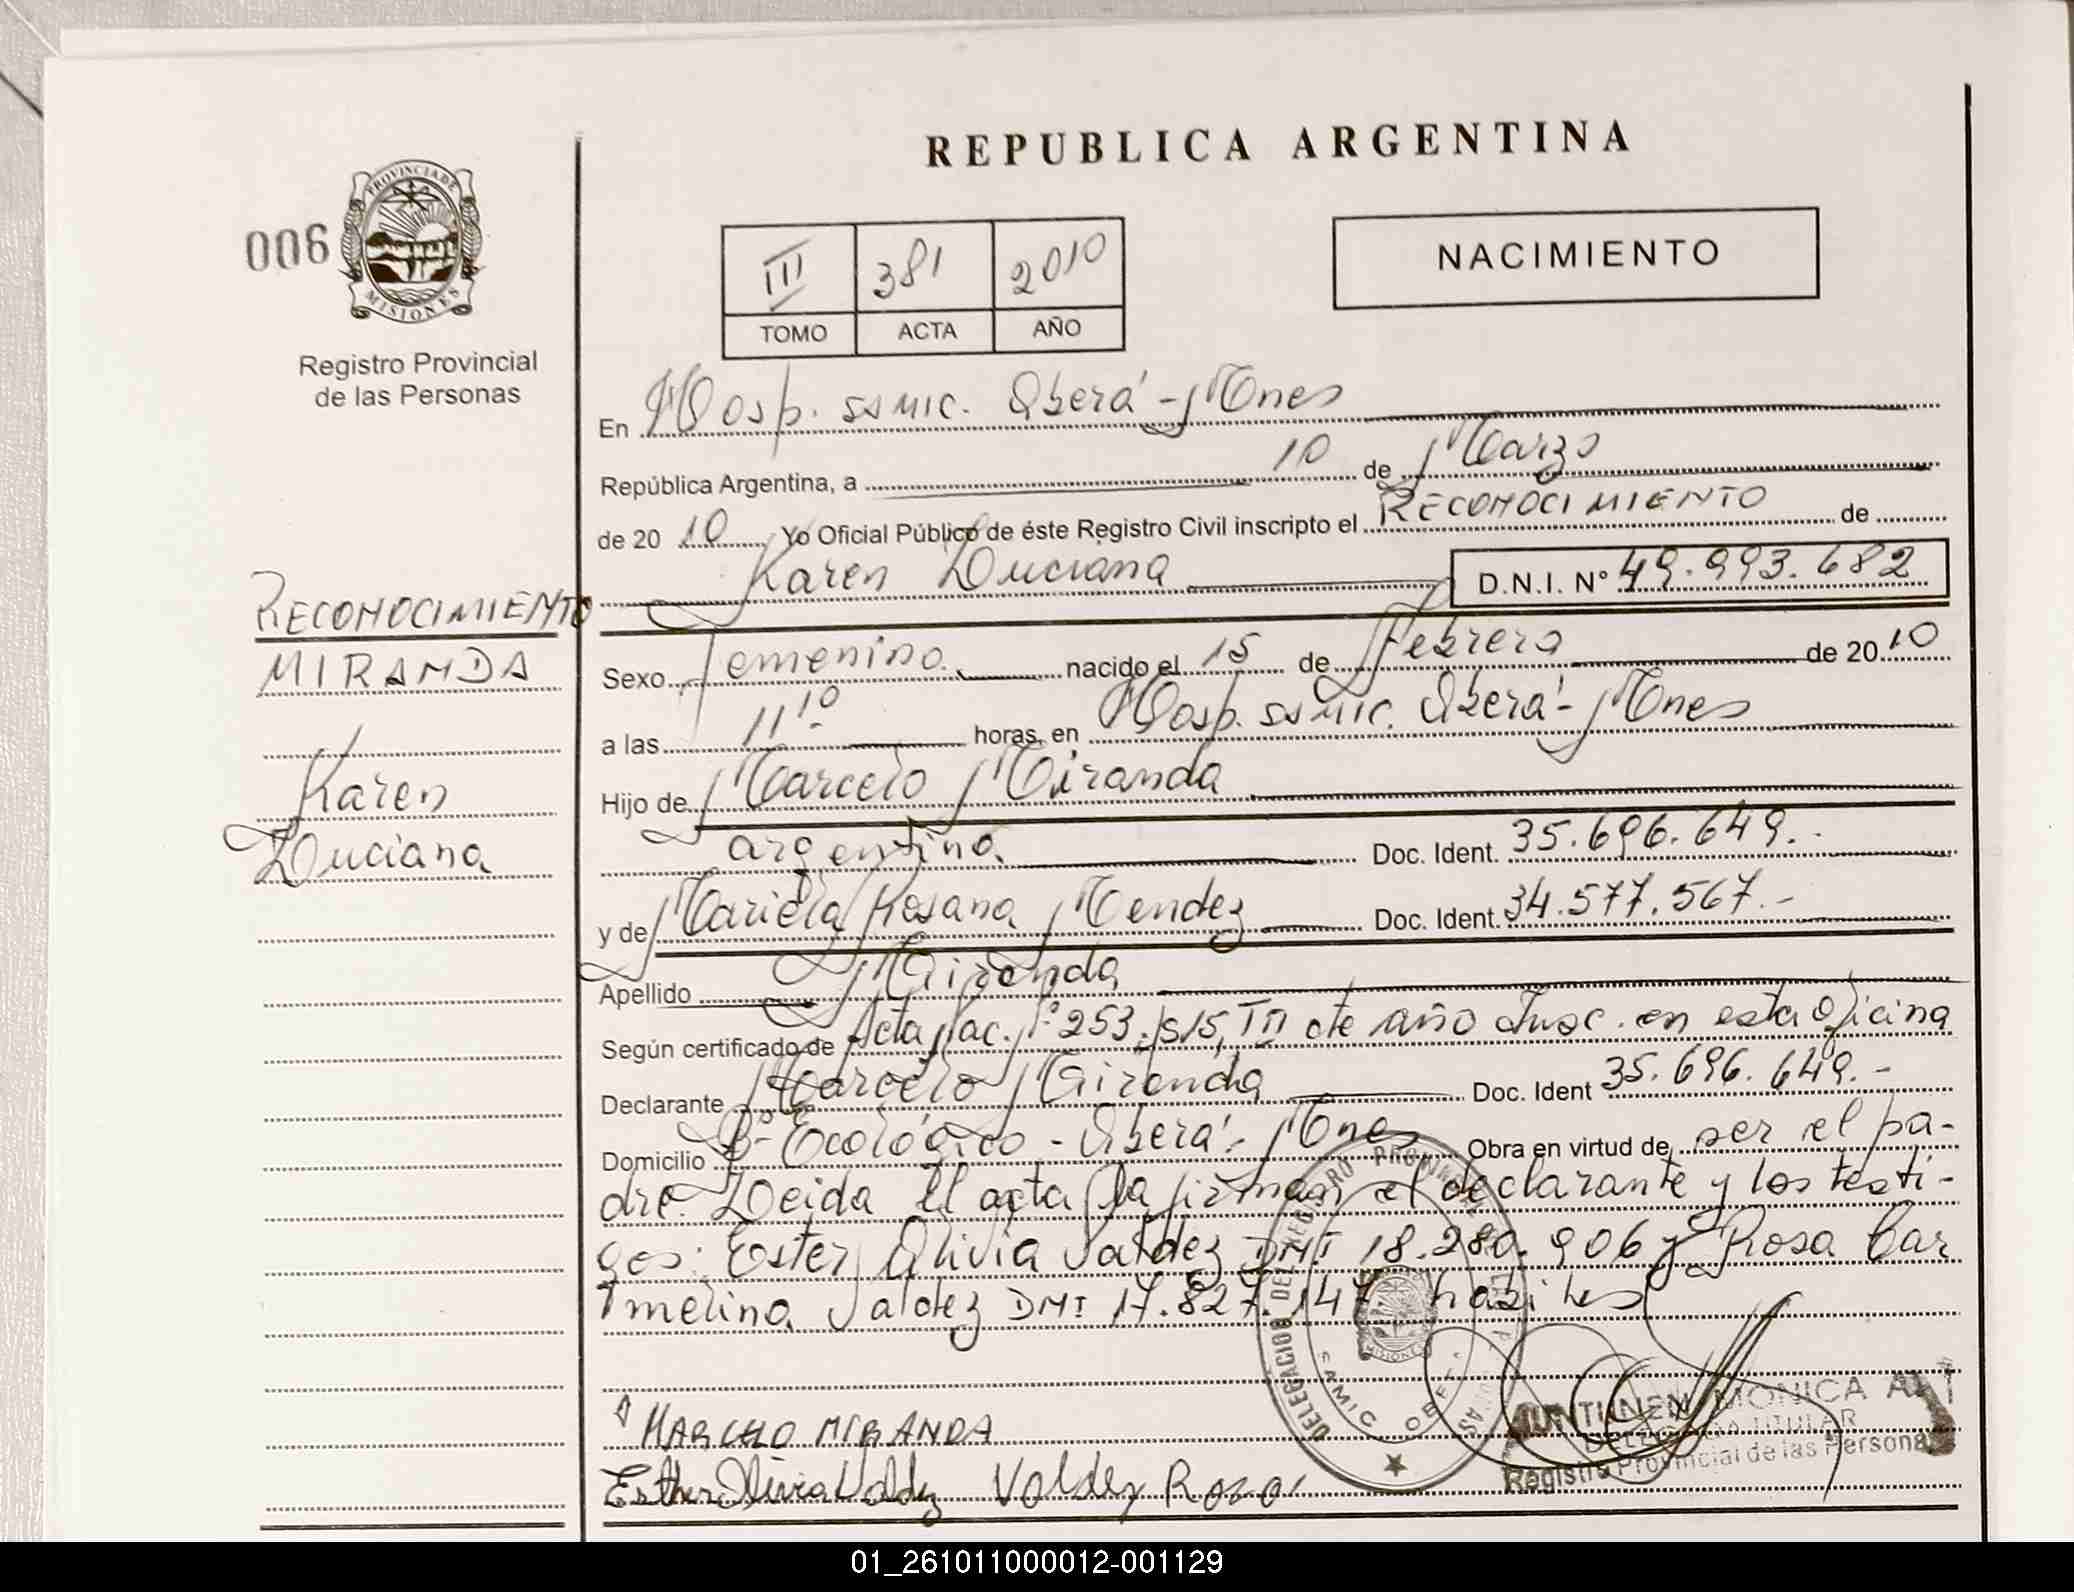 REPUBLICA ARGENTINA
006
PROVINCIA DE
MISIONES
Registro Provincial
de las Personas
III 381 2010
TOMO ACTA AÑO
NACIMIENTO
En Hosp. SAMIC. Oberá - Mnes
República Argentina, a 10 de Marzo
de 20 10 Yo Oficial Público de éste Registro Civil inscripto el RECONOCIMIENTO de
Karen Luciana D.N.I. Nº 49.993.682
RECONOCIMIENTO
MIRANDA
Karen
Luciana
Sexo Femenino nacido el 15 de Febrero de 20 10
a las 11 10 horas, en Hosp. SAMIC. Oberá - Mnes
Hijo de Marcelo Miranda
argentino Doc. Ident. 35.696.649.-
y de Mariela Rosana Mendez Doc. Ident. 34.577.567.-
Apellido Miranda
Según certificado de Acta Nac. Nº 253, III de año Insc. en esta Oficina
Declarante Marcelo Miranda Doc. Ident 35.696.649.-
Domicilio Bº Ecológico - Oberá - Mnes Obra en virtud de ser el pa-
dre. Leida el acta la firman el declarante y los testi-
gos: Ester Olivia Valdez DNI 18.280.906 y Rosa Car
melina Valdez DNI 17.827.147 habiles
MARCELO MIRANDA
Esther Olivia Valdez Valdez Rosa
DELEGACION DEL REGISTRO PROVINCIAL DE LAS
SAMIC OBERA
MISIONES
MONICA
DELEGADA TITULAR
Registro Provincial de las Personas
01_261011000012-001129